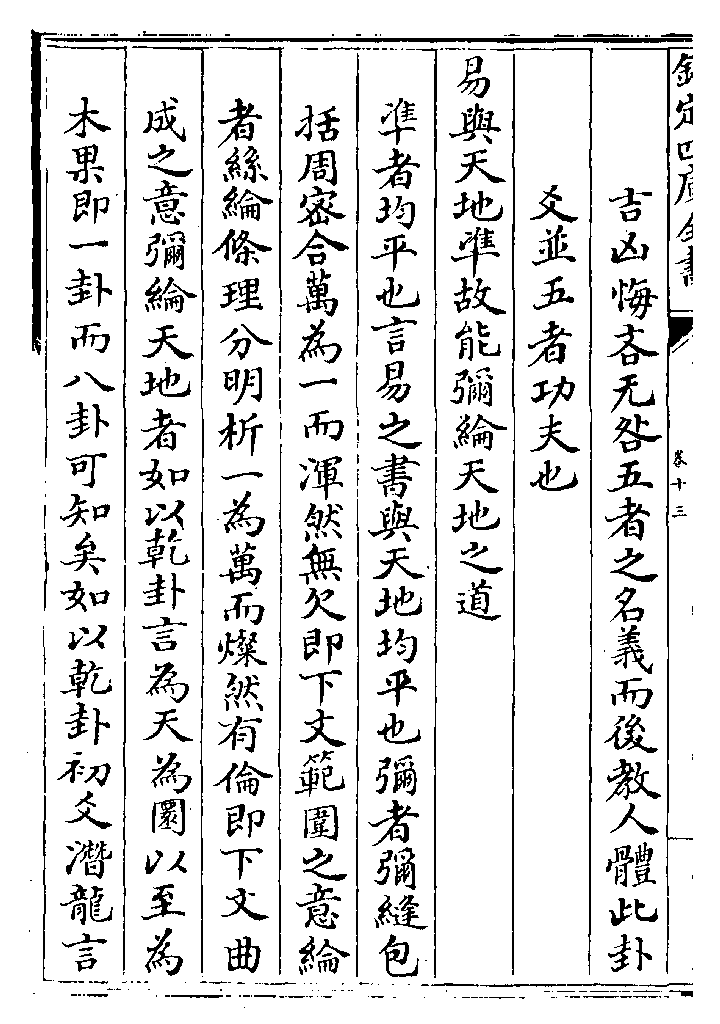 欽定四庫全書
卷十三
吉凶悔吝无咎五者之名義而後教人體此卦
爻並五者功夫也
易與天地準故能彌綸天地之道
準者均平也言易之書與天地均平也彌者彌縫包
括周密合萬為一而渾然無欠即下文範圍之意綸
者絲綸條理分明析一為萬而燦然有倫即下文曲
成之意彌綸天地者如以乾卦言為天為圜以至為
木果即一卦而八卦可知矣如以乾卦初爻潛龍言